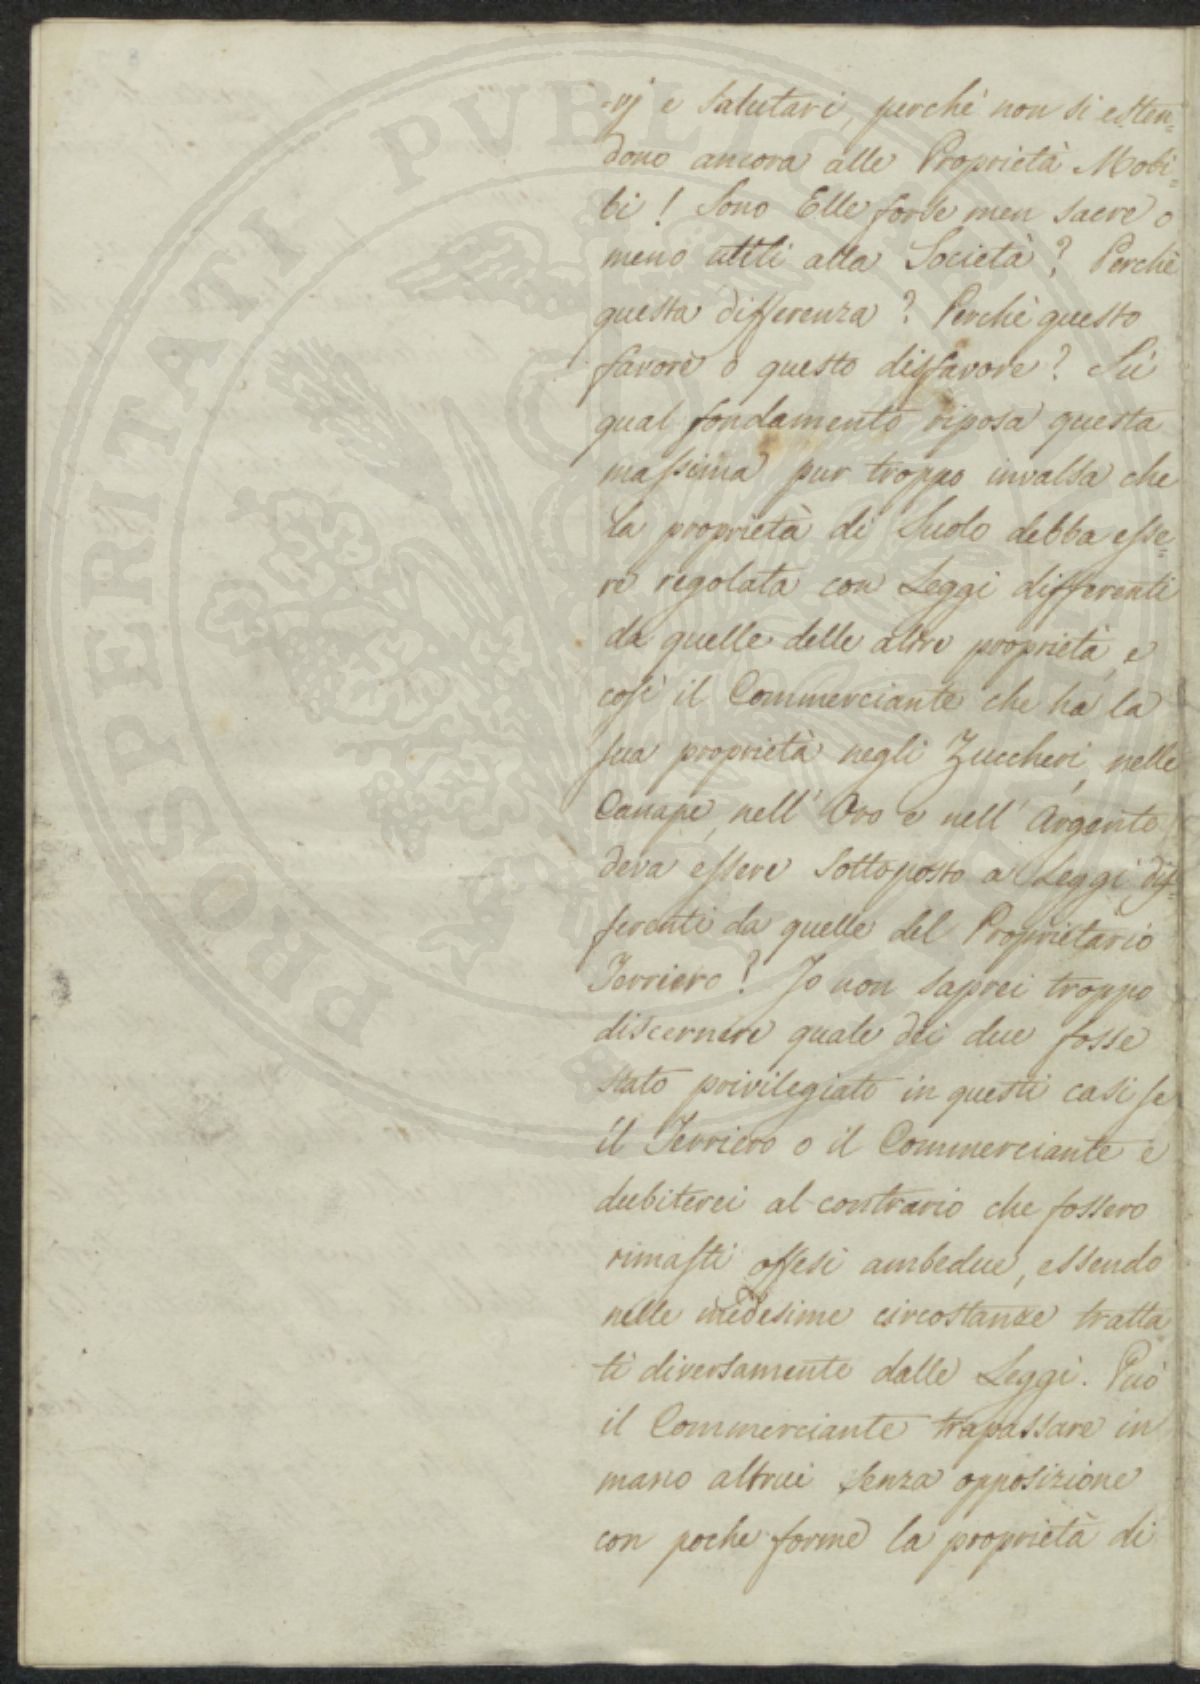 -vj e salutari, perchè non si esten=
dono ancora alle Proprietà Mobi=
li! Sono Elle forse men sacre o
meno utili alla Società? Perchè
questa differenza? Perchè questo
favore o questo disfavore? Sù
qual fondamento riposa questa
massima pur troppo invalsa che
la proprietà di Suolo debba esse=
re regolata con Leggi differenti
da quelle delle altre proprietà, e
così il Commerciante che ha la
sua proprietà negli Zuccheri, nelle
Canape, nell' Oro e nell' Argento
deva essere sottoposto a Leggi dif=
ferenti da quelle del Proprietario
Terriero? Io non saprei troppo
discernere quale dei due fosse
stato privilegiato in questi casi se
il Terriero o il Commerciante e
dubiterei al contrario che fossero
rimasti offesi ambedue, essendo
nelle medesime circostanze tratta
ti diversamente dalle Leggi. Può
il Commerciante trapassare in
mano altrui senza opposizione
con poche forme la proprietà di
PROSPERITATI PUBLICAE